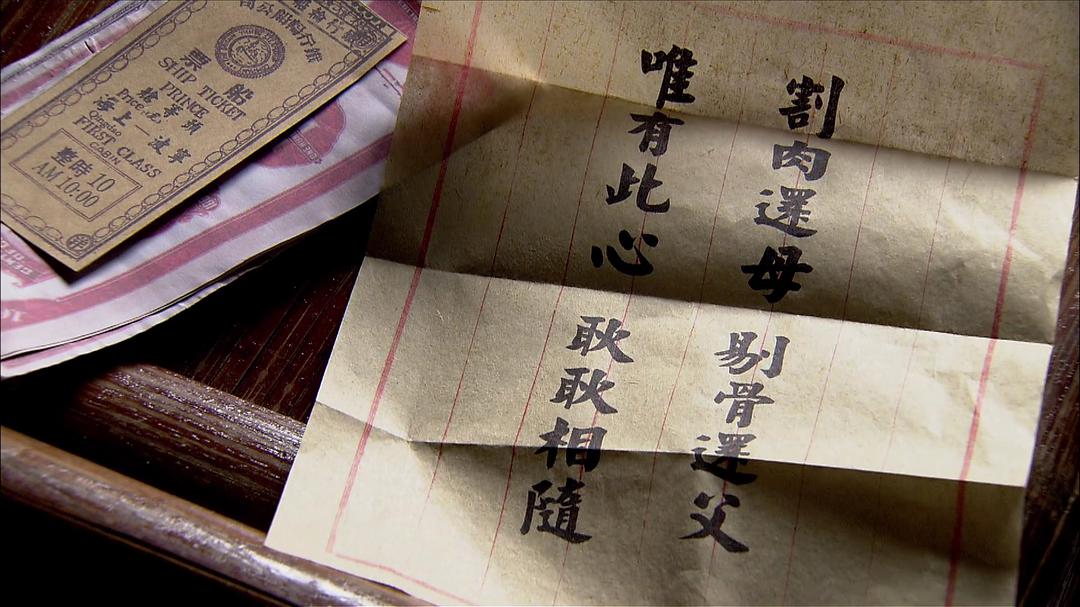 割肉還母
剔骨還父
唯有此心
耿耿相隨
船票
SHIP TICKET
PRINCE
頭等艙
寧波一上海
Qingdao
FIRST CLASS
CABIN
10時整
AM 10:00